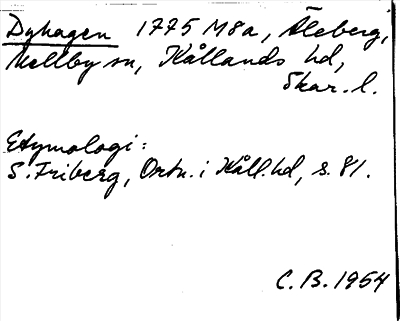 Dyhagen 1775 M8a, Åleberg,
Mellby sn, Kållands hd,
Skar. l.
Etymologi:
S. Friberg, Ortn. i Kåll. hd, s. 81.
C. B. 1954